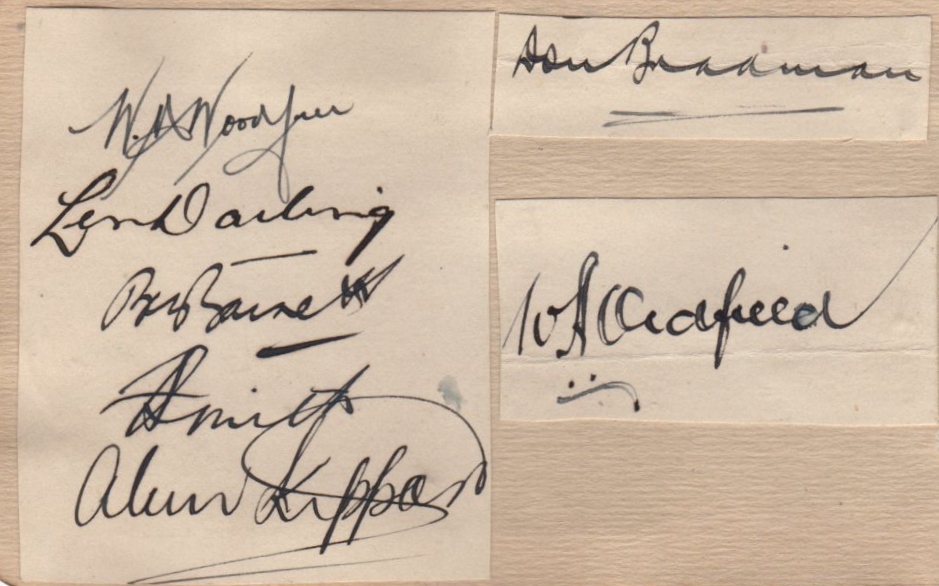 W. M. Woodfull
Len Darling
Ben Barnett
Smith
Alan Kippax
Don Bradman
W A Oldfield